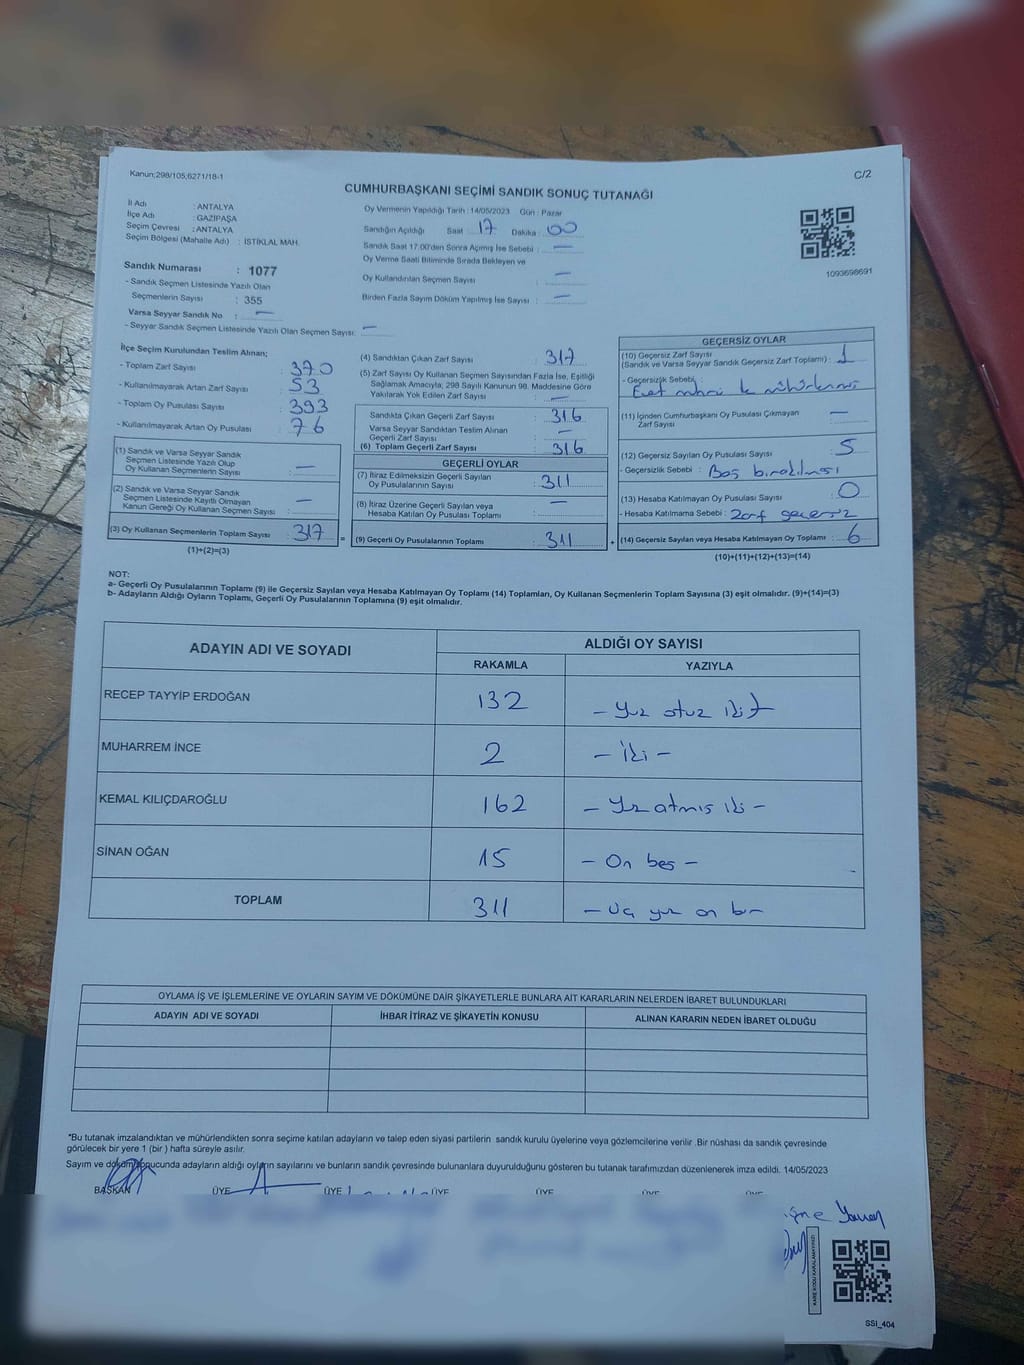 Kanun;298/105,6271/18-1
C/2
CUMHURBAŞKANI SEÇİMİ SANDIK SONUÇ TUTANAĞI
İl Adı : ANTALYA
İlçe Adı : GAZİPAŞA
Seçim Çevresi : ANTALYA
Seçim Bölgesi (Mahalle Adı) : İSTİKLAL MAH.
Sandık Numarası : 1077
- Sandık Seçmen Listesinde Yazılı Olan
Seçmenlerin Sayısı : 355
Varsa Seyyar Sandık No : —
- Seyyar Sandık Seçmen Listesinde Yazılı Olan Seçmen Sayısı: —
Oy Vermenin Yapıldığı Tarih : 14/05/2023 Gün : Pazar
Sandığın Açıldığı Saat : 17 Dakika : 00
Sandık Saat 17:00'den Sonra Açmış İse Sebebi : —
Oy Verme Saati Bitiminde Sırada Bekleyen ve
Oy Kullandırılan Seçmen Sayısı : —
Birden Fazla Sayım Döküm Yapılmış İse Sayısı : —
1093698691
İlçe Seçim Kurulundan Teslim Alınan;
- Toplam Zarf Sayısı : 370
- Kullanılmayarak Artan Zarf Sayısı : 53
- Toplam Oy Pusulası Sayısı : 393
- Kullanılmayarak Artan Oy Pusulası : 76
(1) Sandık ve Varsa Seyyar Sandık
Seçmen Listesinde Yazılı Olup
Oy Kullanan Seçmenlerin Sayısı : —
(2) Sandık ve Varsa Seyyar Sandık
Seçmen Listesinde Kayıtlı Olmayan
Kanun Gereği Oy Kullanan Seçmen Sayısı : —
(3) Oy Kullanan Seçmenlerin Toplam Sayısı : 317 =
(1)+(2)=(3)
(4) Sandıktan Çıkan Zarf Sayısı : 317
(5) Zarf Sayısı Oy Kullanan Seçmen Sayısından Fazla İse, Eşitliği
Sağlamak Amacıyla, 298 Sayılı Kanunun 98. Maddesine Göre
Yakılarak Yok Edilen Zarf Sayısı : —
Sandıkta Çıkan Geçerli Zarf Sayısı : 316
Varsa Seyyar Sandıktan Teslim Alınan
Geçerli Zarf Sayısı : —
(6) Toplam Geçerli Zarf Sayısı : 316
GEÇERLİ OYLAR
(7) İtiraz Edilmeksizin Geçerli Sayılan
Oy Pusulalarının Sayısı : 311
(8) İtiraz Üzerine Geçerli Sayılan veya
Hesaba Katılan Oy Pusulası Toplamı : —
(9) Geçerli Oy Pusulalarının Toplamı : 311 +
GEÇERSİZ OYLAR
(10) Geçersiz Zarf Sayısı
(Sandık ve Varsa Seyyar Sandık Geçersiz Zarf Toplamı) : 1
- Geçersizlik Sebebi :
Evet mührü
(11) İçinden Cumhurbaşkanı Oy Pusulası Çıkmayan
Zarf Sayısı : —
(12) Geçersiz Sayılan Oy Pusulası Sayısı : 5
- Geçersizlik Sebebi : Boş bırakılması
(13) Hesaba Katılmayan Oy Pusulası Sayısı : 0
- Hesaba Katılmama Sebebi : Zarf geçersiz
(14) Geçersiz Sayılan veya Hesaba Katılmayan Oy Toplamı : 6
(10)+(11)+(12)+(13)=(14)
NOT:
a- Geçerli Oy Pusulalarının Toplamı (9) ile Geçersiz Sayılan veya Hesaba Katılmayan Oy Toplamı (14) Toplamları, Oy Kullanan Seçmenlerin Toplam Sayısına (3) eşit olmalıdır. (9)+(14)=(3)
b- Adayların Aldığı Oyların Toplamı, Geçerli Oy Pusulalarının Toplamına (9) eşit olmalıdır.
ADAYIN ADI VE SOYADI
ALDIĞI OY SAYISI
RAKAMLA YAZIYLA
RECEP TAYYİP ERDOĞAN 132 – Yüz otuz iki –
MUHARREM İNCE 2 – iki –
KEMAL KILIÇDAROĞLU 162 – Yüz atmış iki –
SİNAN OĞAN 15 – On beş –
TOPLAM 311 – Üç yüz on bir
OYLAMA İŞ VE İŞLEMLERİNE VE OYLARIN SAYIM VE DÖKÜMÜNE DAİR ŞİKAYETLERLE BUNLARA AİT KARARLARIN NELERDEN İBARET BULUNDUKLARI
ADAYIN ADI VE SOYADI İHBAR İTİRAZ VE ŞİKAYETİN KONUSU ALINAN KARARIN NEDEN İBARET OLDUĞU
*Bu tutanak imzalandıktan ve mühürlendikten sonra seçime katılan adayların ve talep eden siyasi partilerin sandık kurulu üyelerine veya gözlemcilerine verilir .Bir nüshası da sandık çevresinde
görülecek bir yere 1 (bir ) hafta süreyle asılır.
Sayım ve döküm sonucunda adayların aldığı oyların sayılarını ve bunların sandık çevresinde bulunanlara duyurulduğunu gösteren bu tutanak tarafımızdan düzenlenerek imza edildi. 14/05/2023
BAŞKAN ÜYE ÜYE ÜYE ÜYE ÜYE ÜYE
KARE KODU KARALAMAYINIZ!
SSI_404